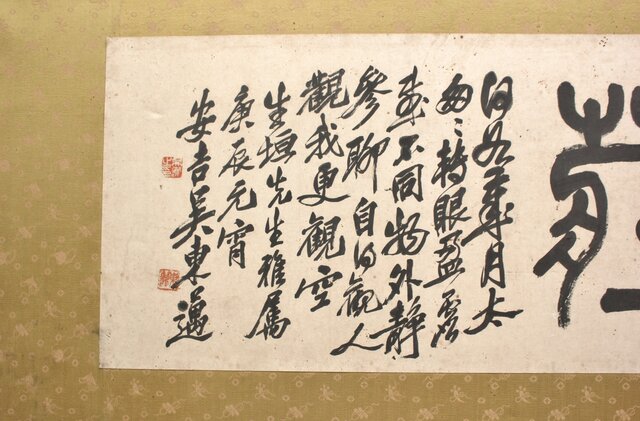 歲月太
匆〻轉眼盈虛
事不同物外靜
參聊自得觀人
觀我更觀空
生垣先生雅屬
庚辰元宵
安吉吳東邁